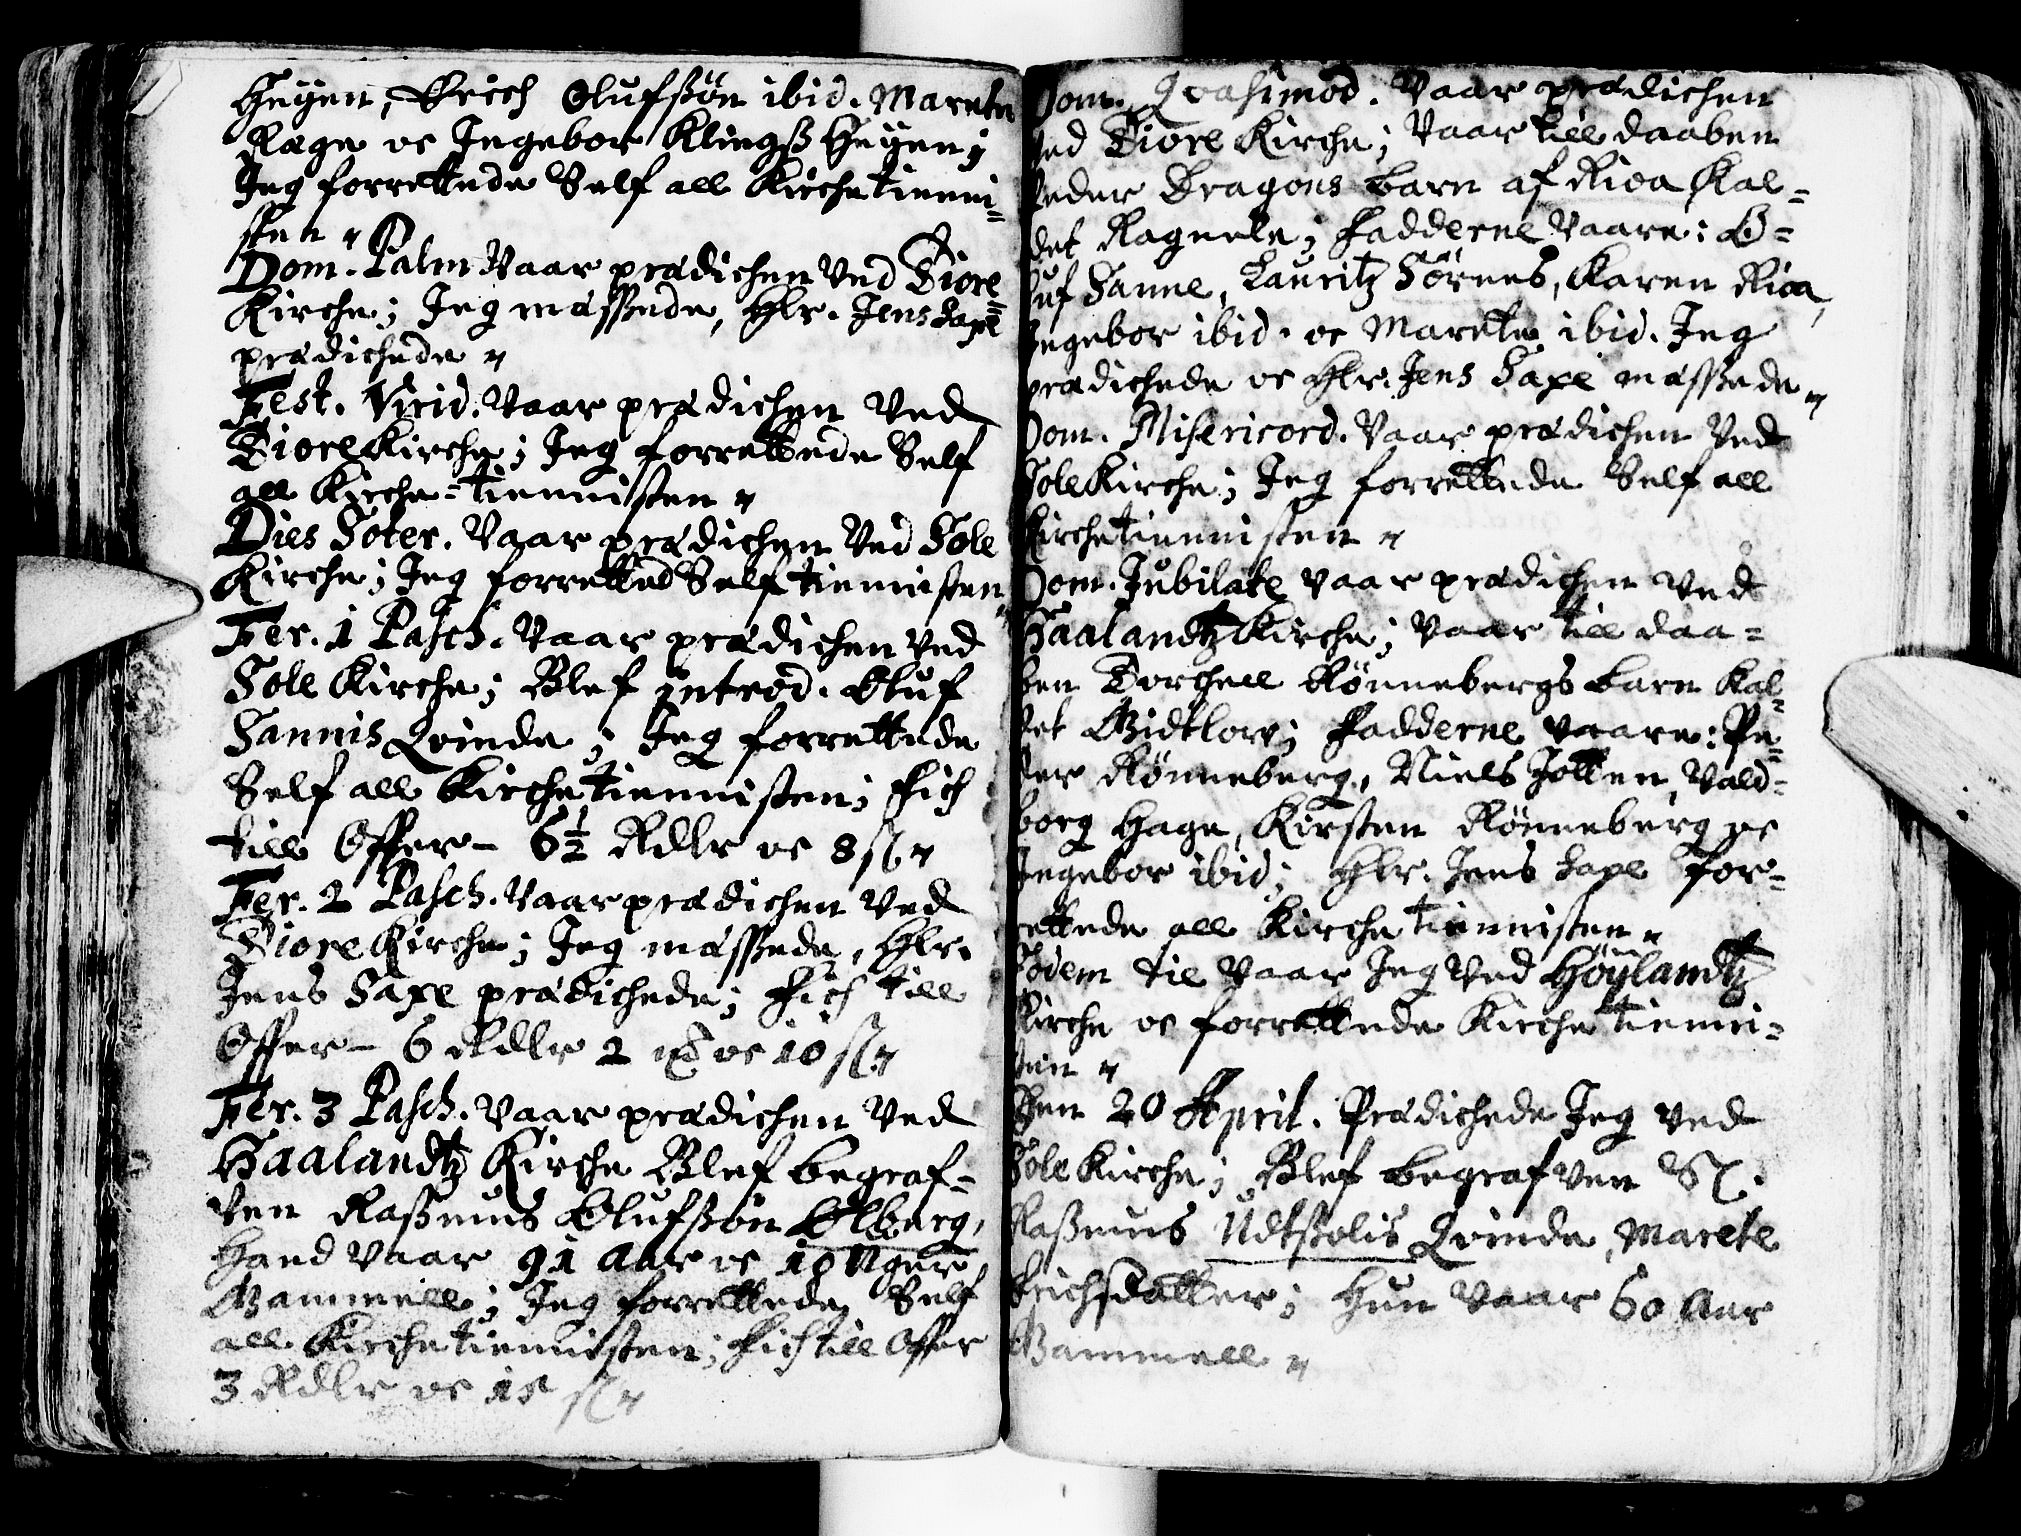 Høyen, Erich Olufsøn ibid. Marete
Rage oc Ingebor Klingß Høyen;
Jeg forrettede Self all Kirchetienni=
sten
Dom. Palm Vaar prædichen Ved Tiore
Kirche; Jeg massede, Hlr. Jens Saxe
prædichede
Fest. Virid. Vaar prædichen Ved
Tiore Kirche; Jeg forrettede Self
all Kirche=tiennisten
Dies Soter. Vaar prædichen Ved Sole
Kirche; Jeg forretted Self tiennisten
Fer. 1 Pasch. Vaar prædichen Ved
Sole Kirche; Blef introd. Oluf
Sannis Qvinde; Jeg forrettede
Self all Kirchetiennisten; Fich
till Offer – 6½ Rdlr oc 8 ß
Fer. 2 Pasch. Vaar prædichen Ved
Tiore Kirche; Jeg massede, Hlr.
Jens Saxe prædichede; Fich till
Offer – 6 Rdlr 2 oc 10 ß
Fer. 3 Pasch. Vaar prædichen Ved
Haalandtz Kirche Blef begraf=
ven Raßmus Olufßøn Ølberg,
Hand Vaar 91 Aar oc 10 Uger
Gammell; Jeg forrettede Self
all Kirchetiennisten; Fich till Offer
3 Rdlr oc 18 ß
Dom. Qvasimod. Vaar prædichen
Ved Tiore Kirche; Vaar till daaben
Peder Dragons barn af Risa Kal=
det Ragnele; Fadderne Vaare: O=
luf Sanne, Lauritz Sörnes, Karen Risa,
Ingebor ibid. oc Marete ibid. Jeg
prædichede oc Hlr. Jens Saxe massede
Dom. Misericord. Vaar prædichen Ved
Sole Kirche; Jeg forrettede Self all
Kirchetiennisten
Dom. Jubilate Vaar prædichen Ved
Haalandtz Kirche; Vaar till daa=
ben Torchell Rönnebergs barn Kal=
det Gidtlov; Fadderne Vaare: Pe=
der Rönneberg, Niels Jotten, Vald=
borg Hage, Kirsten Rönneberg oc
Ingebor ibid; Hlr. Jens Saxe for=
rettede all Kirchetiennisten
Eodem die Vaar Jeg Ved Höylandtz
Kirche oc forrettede Kirchetienni=
sten
Den 20 April. Prædichede Jeg Ved
Sole Kirche; Blef begrafven Sl.
Raßmus Udtsolis Qvinde, Marete
Erichsdatter; Hun Vaar 60 Aar
Gammell